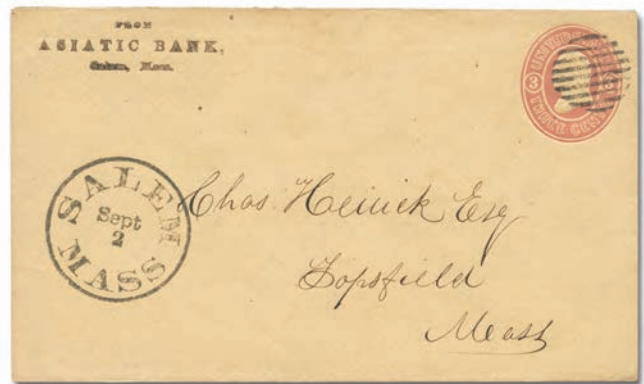 FROM
ASIATIC BANK,
Salem, Mass.
UNITED STATES
3 3
THREE CENTS
SALEM
Sept
2
MASS
Chas. Heinick Esq
Topsfield
Mass